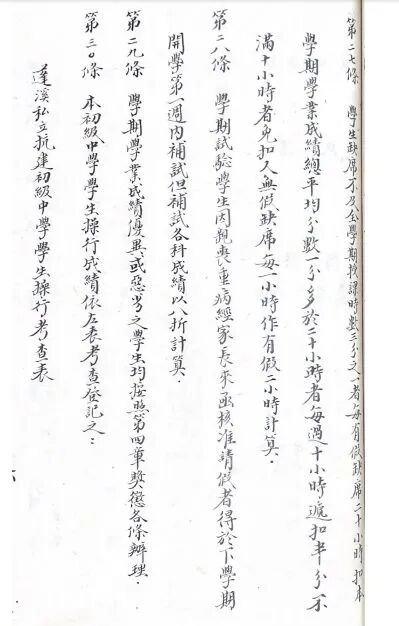 第二七條　學生缺席不及全學期授課時數三分之一者每有假缺席二十小時扣本
學期學業成績總平均分數一分多於二十小時者每過十小時遞扣半分不
滿十小時者免扣又無假缺席每一小時作有假二小時計算．
第二八條　學期試驗學生因親喪重病經家長來函核准請假者得於下學期
開學第一週內補試但補試各科成績以八折計算．
第二九條　學期學業成績優異或惡劣之學生均按照第四章獎懲各條辦理．
第三〇條　本初級中學學生操行成績依左表考查登記之：
蓬溪私立抗建初級中學學生操行考查表